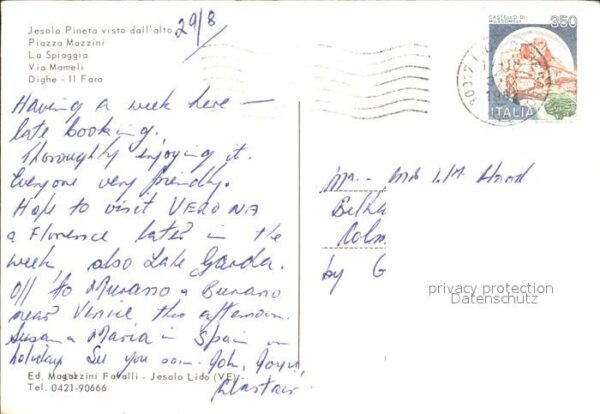 Jesolo Pineta vista dall'alto
Piazza Mazzini
La Spiaggia
Via Mameli
Dighe - Il Faro
29/8
Having a week here —
late booking.
Thoroughly enjoying it.
Everyone very friendly.
Hope to visit VERONA
a Florence later in the
week, also Lake Garda.
Off to Murano a Burano
near Venice this afternoon.
Susan a Maria in Spain on
holiday. See you soon. John,
Alastair.
Ed. Magazzini Favalli - Jesolo Lido (VE)
Tel. 0421-90666
CASTELLO DI
MUSSOMELI
350
ITALIA
Mr. - Mrs
by G
privacy protection
Datenschutz